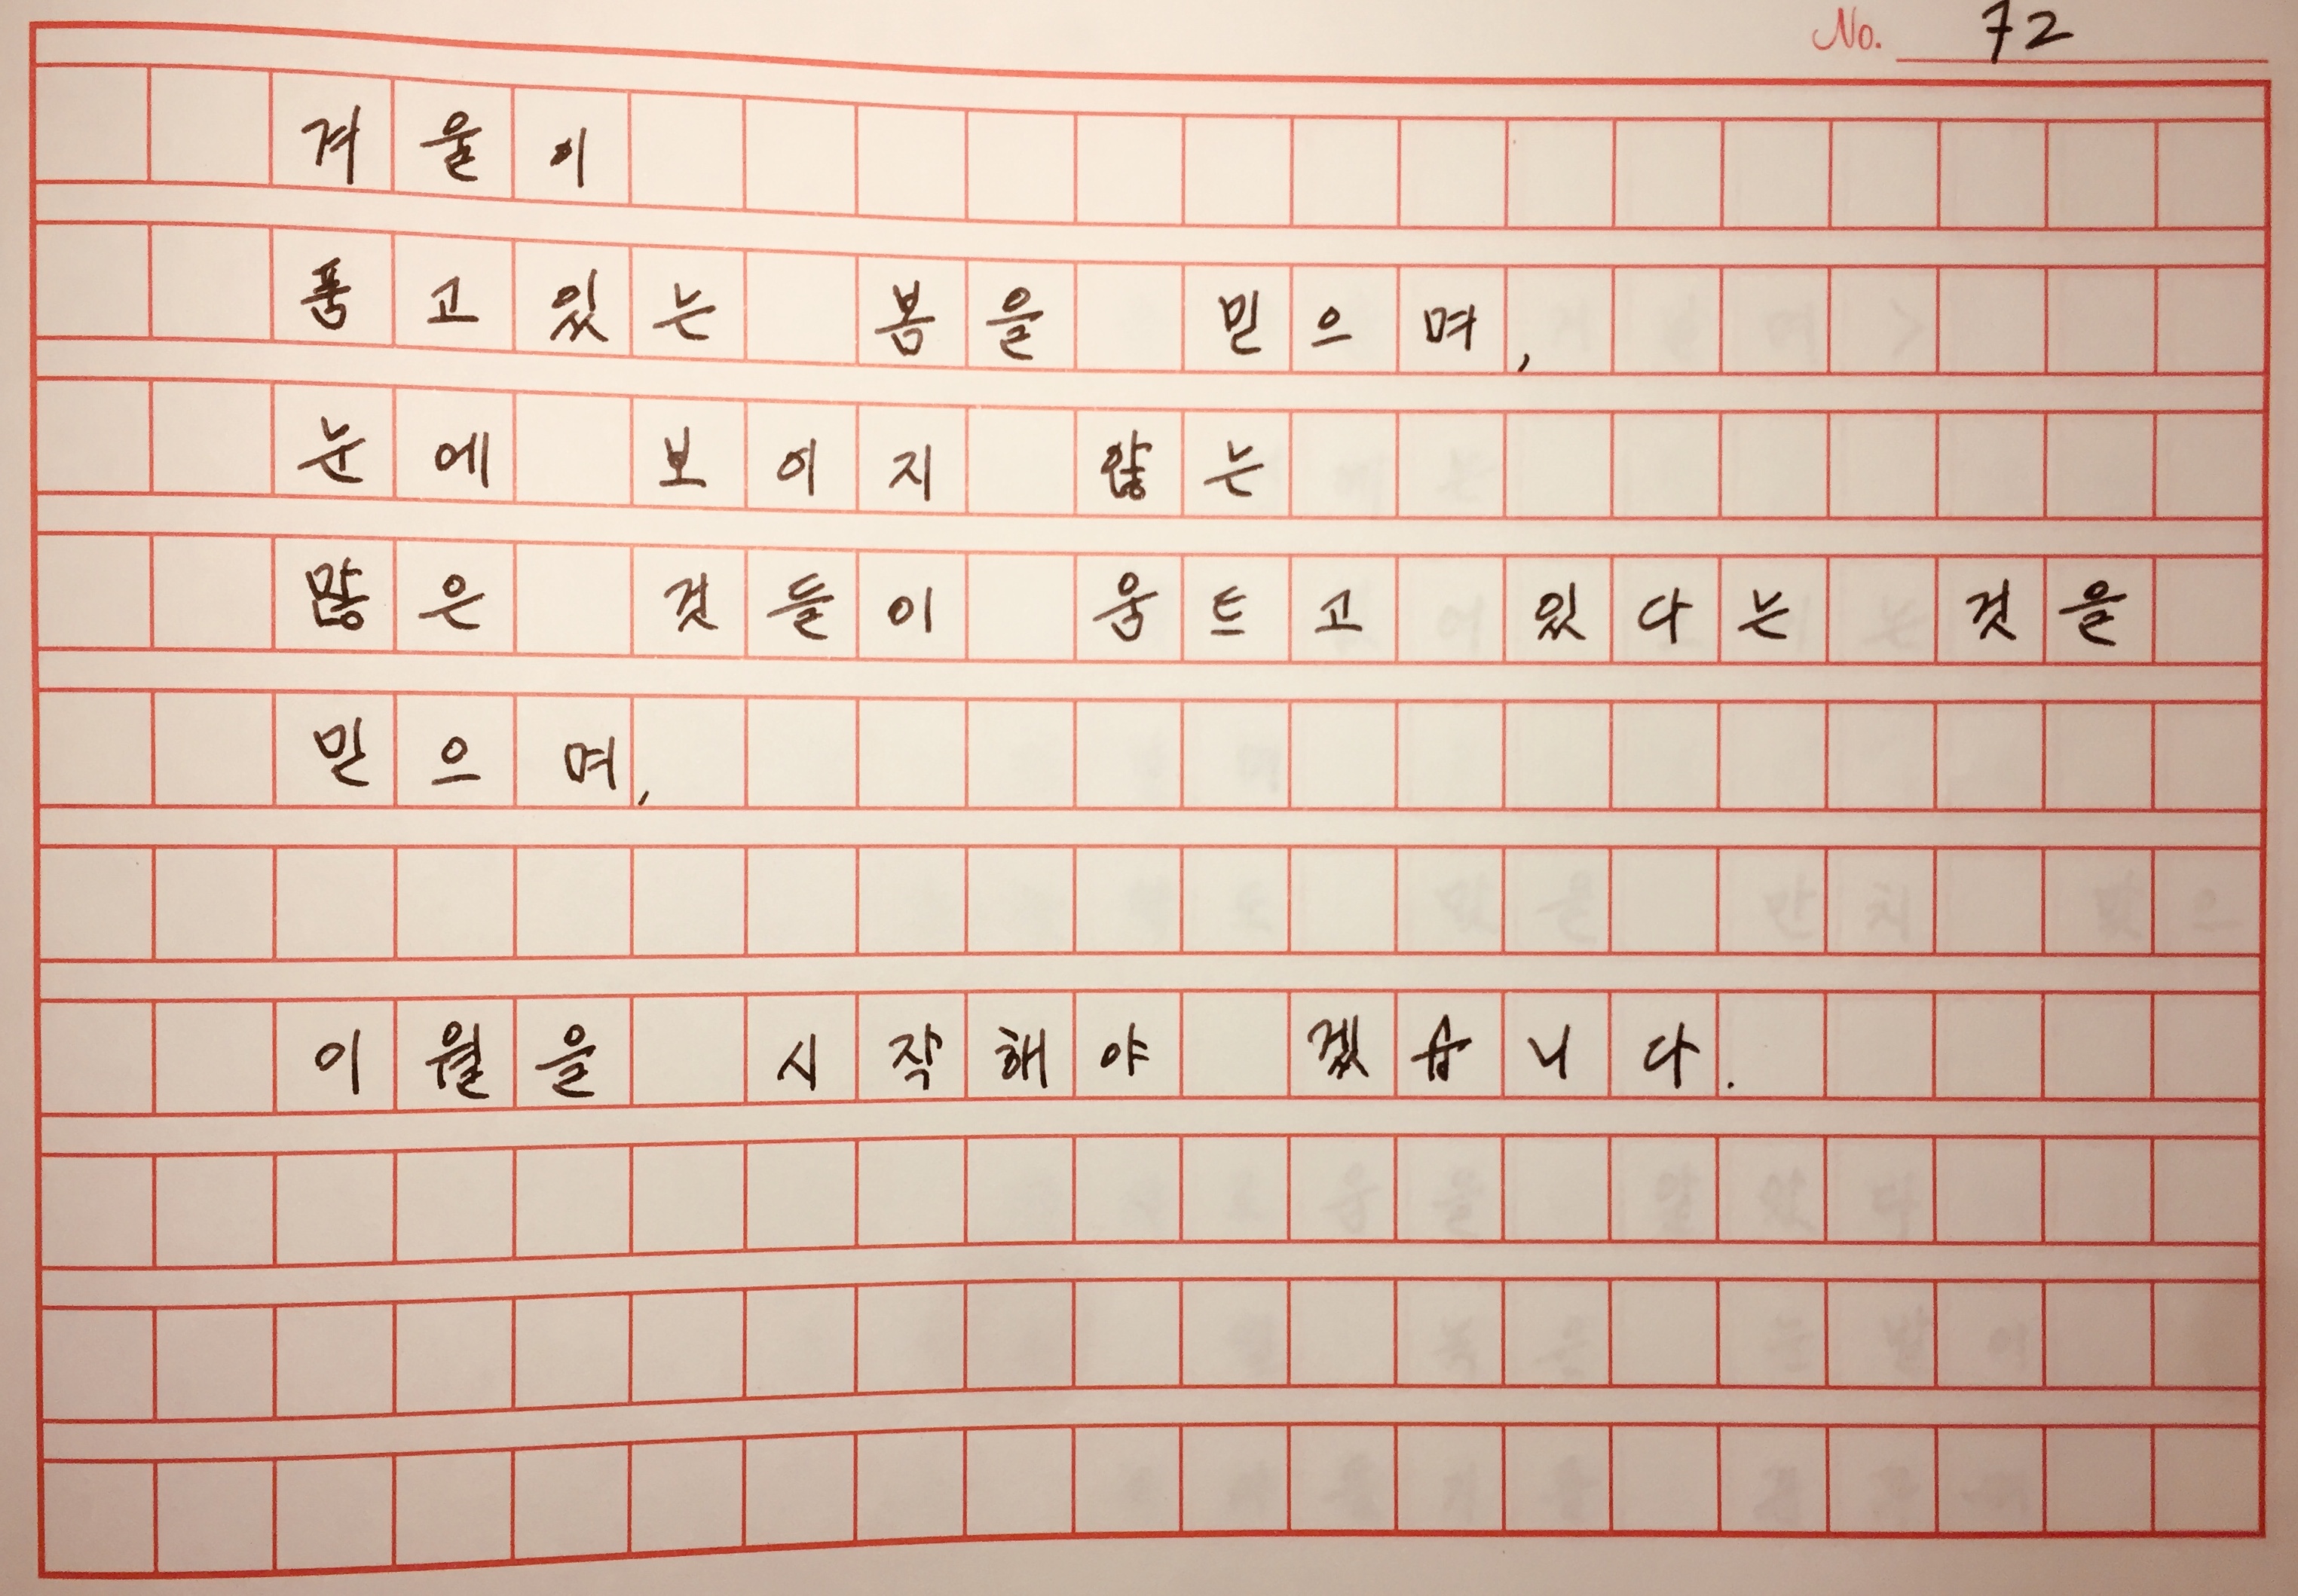 No. 72
겨울이
품고있는 봄을 믿으며,
눈에 보이지 않는
많은 것들이 움트고 있다는 것을
믿으며,
이월을 시작해야 겠습니다.